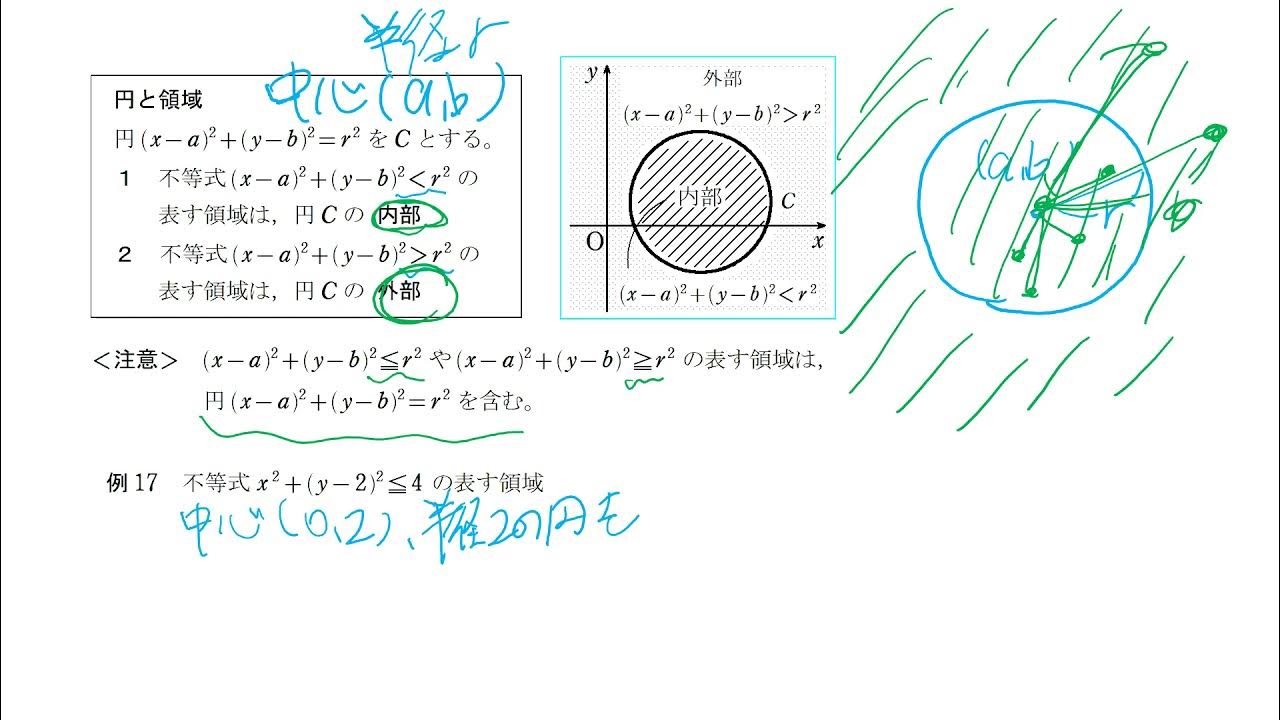 半径r
中心(a,b)
円と領域
円 (x−a)²+(y−b)²=r² を C とする。
1 不等式 (x−a)²+(y−b)²<r² の
表す領域は，円 C の 内部
2 不等式 (x−a)²+(y−b)²>r² の
表す領域は，円 C の 外部
y
外部
(x−a)²+(y−b)²>r²
内部
C
O
x
(x−a)²+(y−b)²<r²
(a,b)
r
＜注意＞ (x−a)²+(y−b)²≦r² や (x−a)²+(y−b)²≧r² の表す領域は，
円 (x−a)²+(y−b)²=r² を含む。
例 17 不等式 x²+(y−2)²≦4 の表す領域
中心(0,2)、半径2の円を